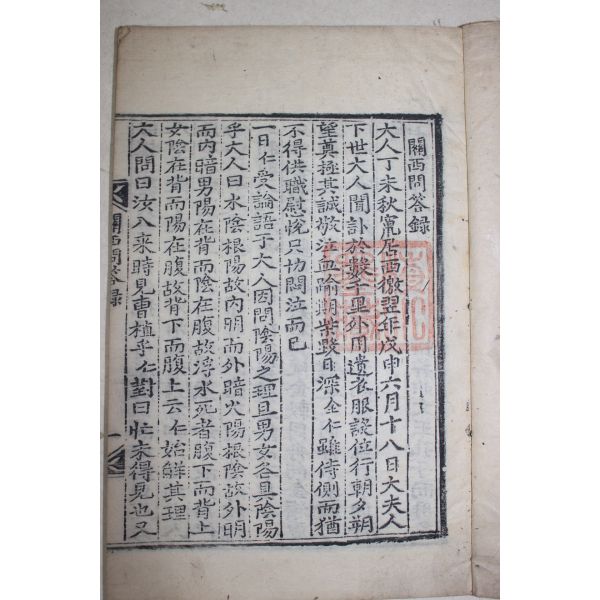 關西問答錄
大人丁未秋竄居西徼翌年戊申六月十八日大夫人
下世大人聞訃於數千里外用遺衣服設位行朝夕朔
望奠極其誠敬泣血喻期柴毀日深全仁雖侍側而猶
不得供職慰悅只切悶泣而已
一日仁受論語于大人因問陰陽之理且男女各具陰陽
乎大人曰水陰根陽故內明而外暗火陽根陰故外明
而內暗男陽在背而陰在腹故浮水死者腹下而背上
女陰在背而陽在腹故背下而腹上云仁始解其理
大人問曰汝入來時見曺植乎仁對曰忙未得見也又
關西問答錄
一